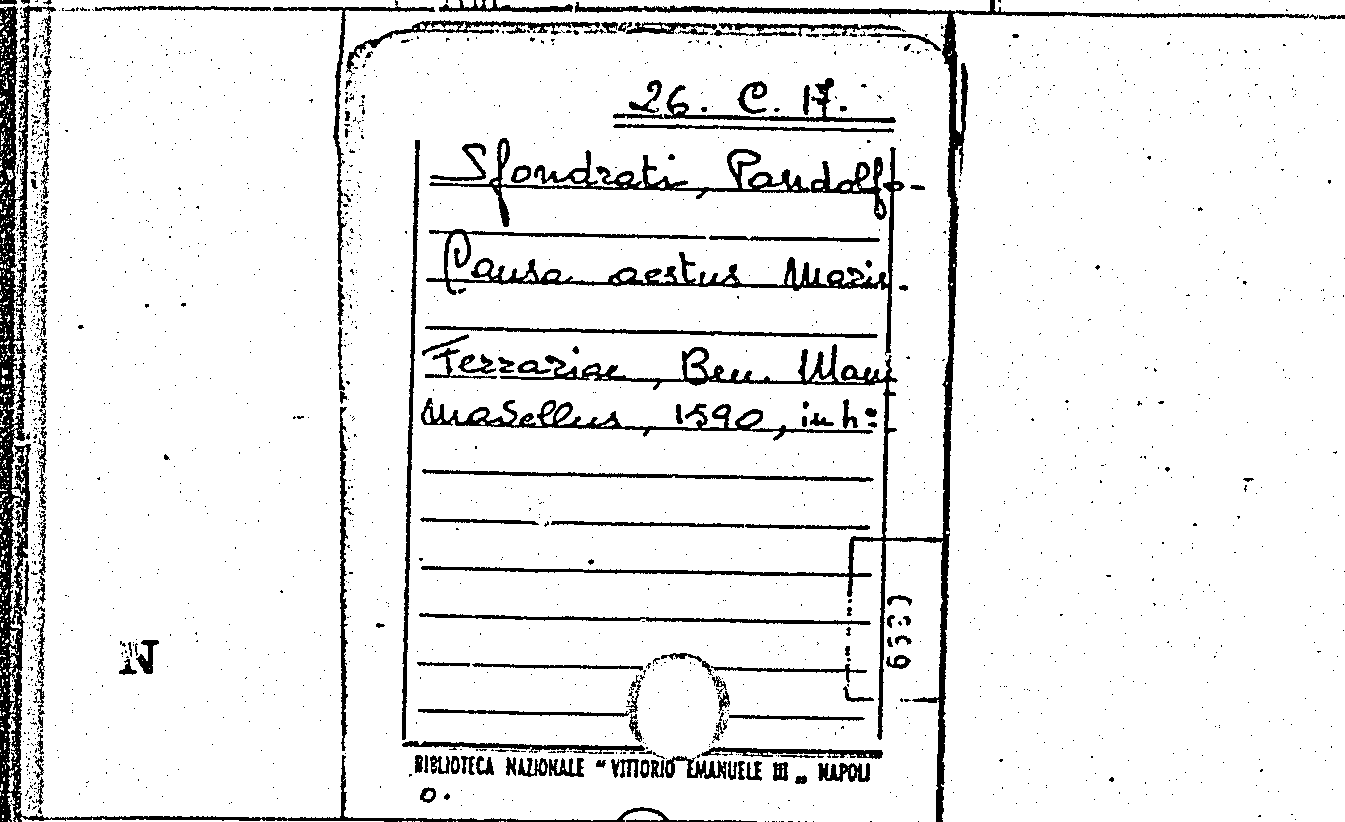 26. C. 17.
Sfondrati, Pandolfo-
Causa aestus Maris.
Ferrariae, Ben. Mam
masellus, 1590, in 4º
BIBLIOTECA NAZIONALE "VITTORIO EMANUELE III„ NAPOLI
o.
N